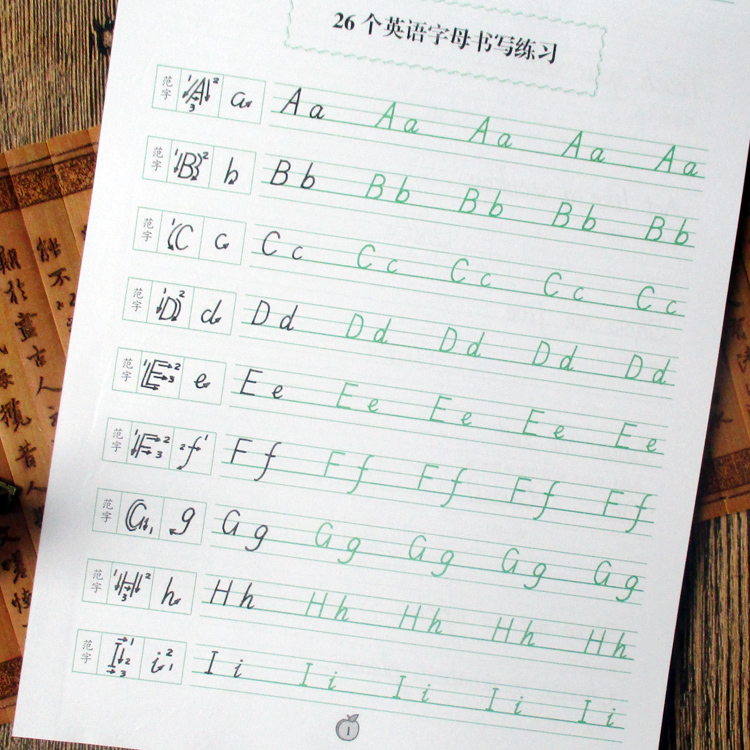 26个英语字母书写练习
范字 A a Aa Aa Aa Aa Aa
范字 B b Bb Bb Bb Bb Bb
范字 C c Cc Cc Cc Cc Cc
范字 D d Dd Dd Dd Dd Dd
范字 E e Ee Ee Ee Ee Ee
范字 F f Ff Ff Ff Ff Ff
范字 G g Gg Gg Gg Gg Gg
范字 H h Hh Hh Hh Hh Hh
范字 I i Ii Ii Ii Ii Ii
1